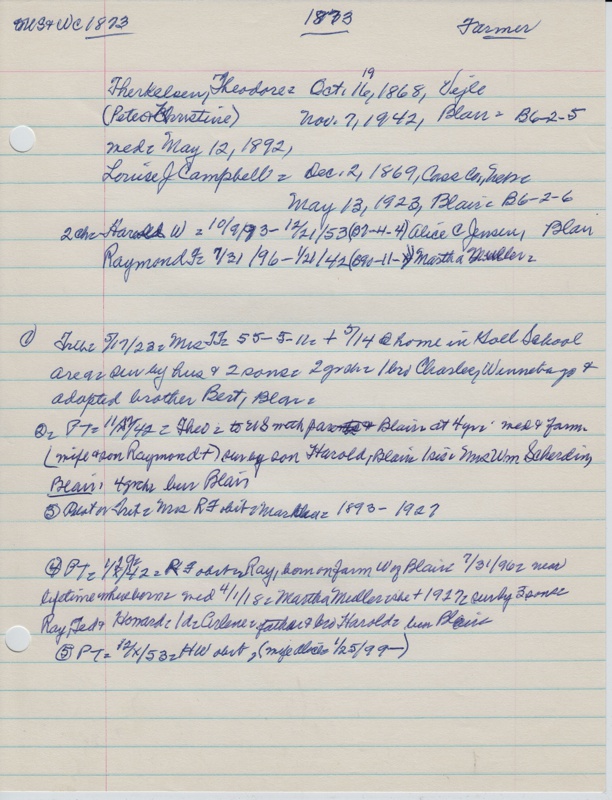 US & WC 1873 1873 Farmer
Therkelsen, Theodore = Oct. 16, 19 1868, Vejle
(Peter & Christine) Nov. 7, 1942, Blair = B6-2-5
med = May 12, 1892,
Louise J Campbell = Dec. 2, 1869, Cass Co, Nebr =
May 13, 1923, Blair = B6-2-6
2 ch = Harold W = 10/9/93 - 12/21/53 (B7-4-4) Alice C Jensen, Blair
Raymond F = 7/31/96 - 1/21/42 (B90-11- ) Martha Mueller =
① Trib = 5/17/23 = Mrs TT = 55-5-11 = + 5/14 @ home in Holl School
area = sur by hus & 2 sons = 2 grch = 1 bro Charles, Winnebago &
adopted brother Bert, Blair =
② = PT = 11/ /42 = Theo = to US with Blair at 4 yrs = med & farm
(wife & son Raymond +) sur by son Harold, Blair 1 sis = Mrs Wm Scherding
Blair, 4 grch bur Blair
③ Ent or Trib = Mrs R F obit = Martha = 1893 - 1927
④ PT = 1/ /42 = R F obit = Ray, born on farm W of Blair 7/31/96 = near
lifetime where born = med 4/1/18 = Martha Mueller she + 1927 = sur by 3 sons =
Ray, Ted & Howard = 1 d = Arlene = father & bro Harold = bur Blair
⑤ PT = 12/ /53 = H W obit, (wife Alice = 1/25/99 - )